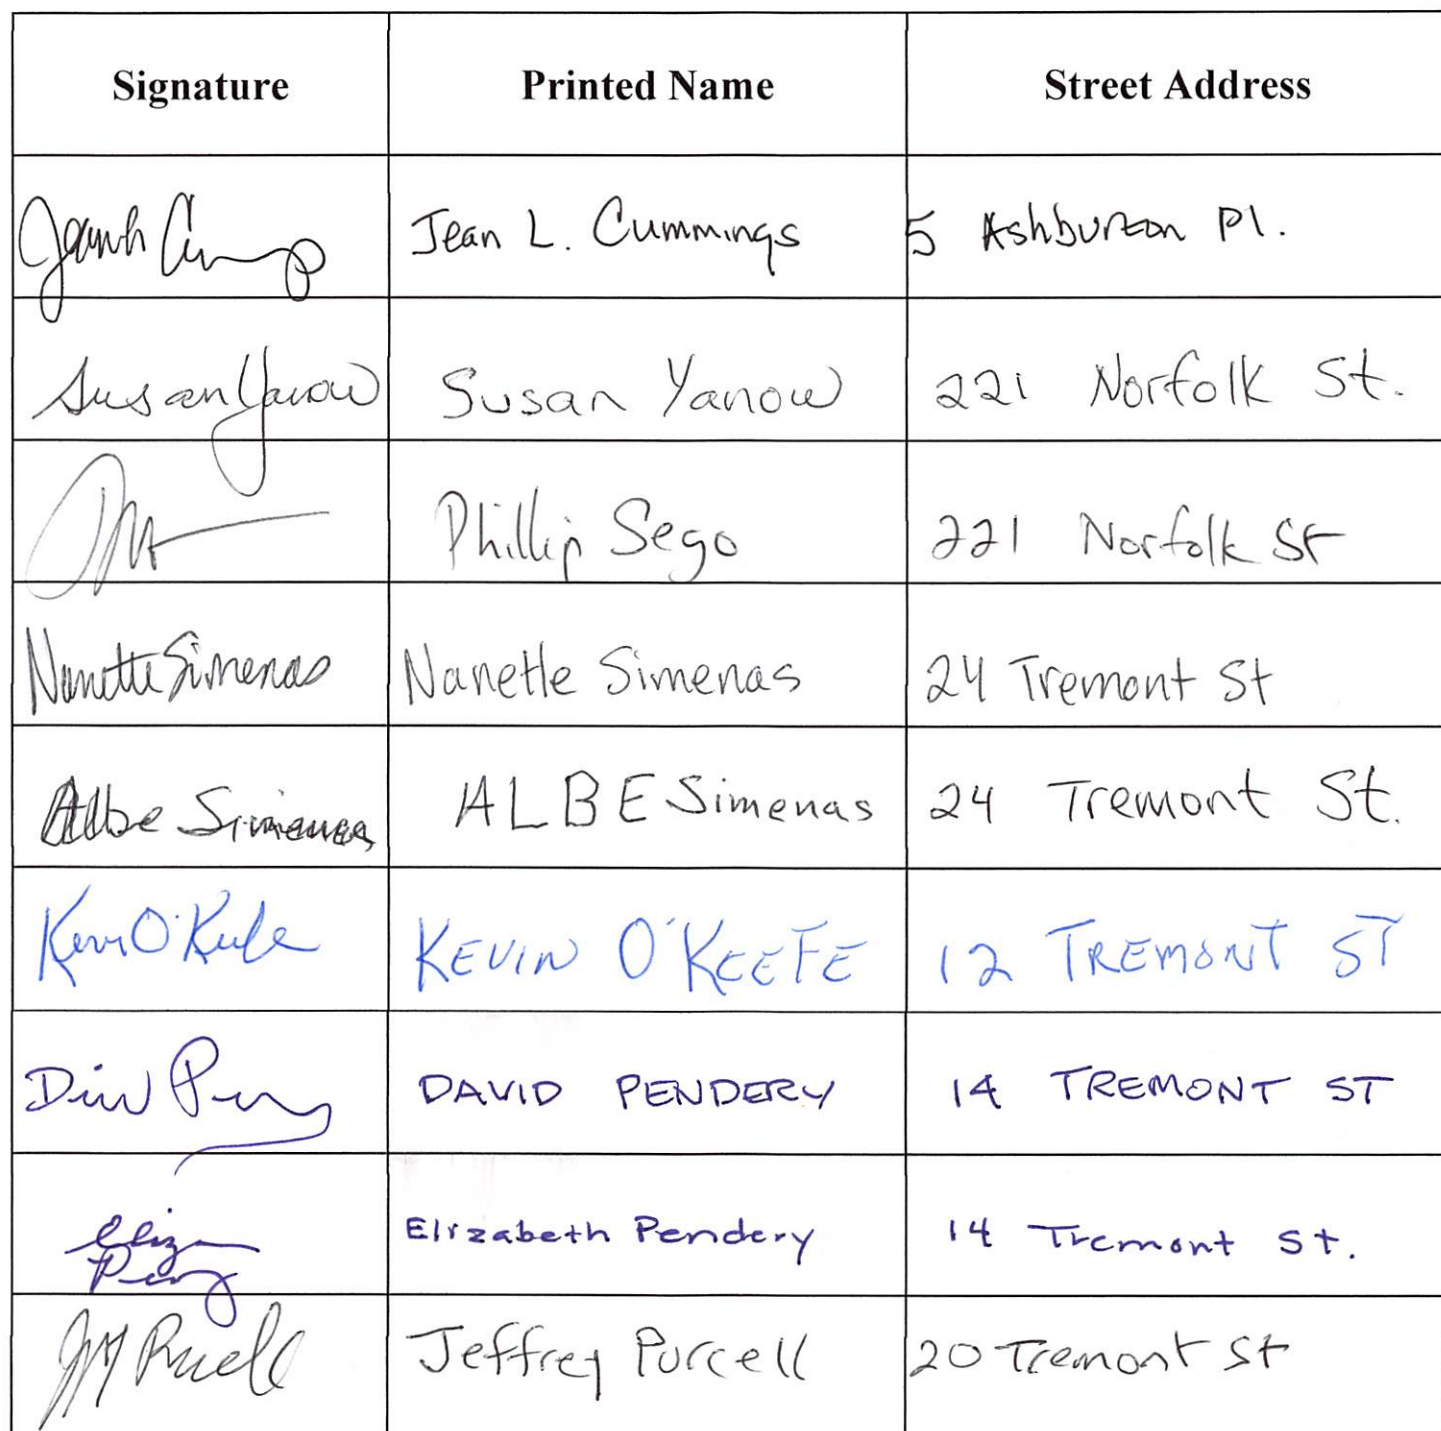 Signature Printed Name Street Address
Jean L. Cummings 5 Ashburton Pl.
Susan Yanow Susan Yanow 221 Norfolk St.
Phillip Sego 221 Norfolk St
Nanette Simenas Nanette Simenas 24 Tremont St
Albe Simenas ALBE Simenas 24 Tremont St.
Kevin O'Keefe KEVIN O'KEEFE 12 TREMONT ST
DAVID PENDERY 14 TREMONT ST
Elizabeth Pendery 14 Tremont St.
Jeffrey Purcell 20 Tremont St